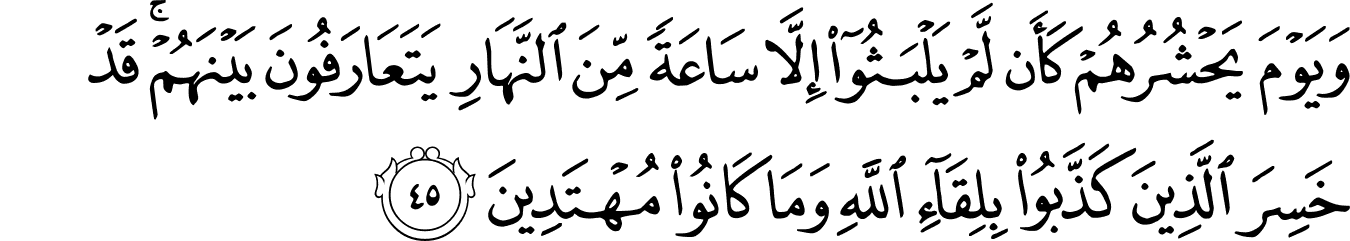 وَيَوْمَ يَحْشُرُهُمْ كَأَن لَّمْ يَلْبَثُوٓا۟ إِلَّا سَاعَةً مِّنَ ٱلنَّهَارِ يَتَعَارَفُونَ بَيْنَهُمْ ۚ قَدْ
خَسِرَ ٱلَّذِينَ كَذَّبُوا۟ بِلِقَآءِ ٱللَّهِ وَمَا كَانُوا۟ مُهْتَدِينَ ٤٥